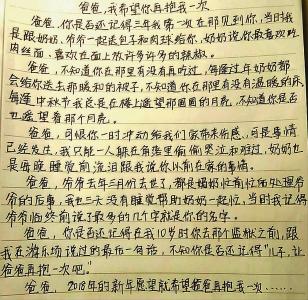 爸爸,我希望你再抱我一次
爸爸,你是否还记得三年我第一次在那见到你,当时我
是跟奶奶、爷爷一起送包子和肉球给你,奶奶说你最喜欢吃
肉丝面,喜欢在面上放许多许多的辣椒。
爸爸,不知道你在那里有没有再吃过,每逢过年奶奶都
会给你送去那暖和的被子,不知道你在那里有没有温暖的床,
每逢中秋节我总是在楼上遥望那圆圆的月亮,不知道你是否
也遥望着那个月亮。
爸爸,可恨你一时冲动给我们家带来伤感,可是事情
已经发生,我只能一人躲在角落里偷偷哭泣和难过,奶奶也
是每晚睡觉前流泪跟我说你以前在家的事情。
爸爸,爷爷去年5月份去世了,都是奶奶忙前忙后处理爷
爷的后事,我也三天没有睡觉帮助奶奶一起忙,当时我记得
爷爷临终前说了最多的几个字就是你的名字。
爸爸,你是否还记得在我10岁时你去那个监狱之前,跟
我在游乐场说过的最后一句话,不知你是否还记得"儿子,让
爸爸再抱一次吧。"
爸爸,2018年的新年愿望就希望爸爸再抱我一次……